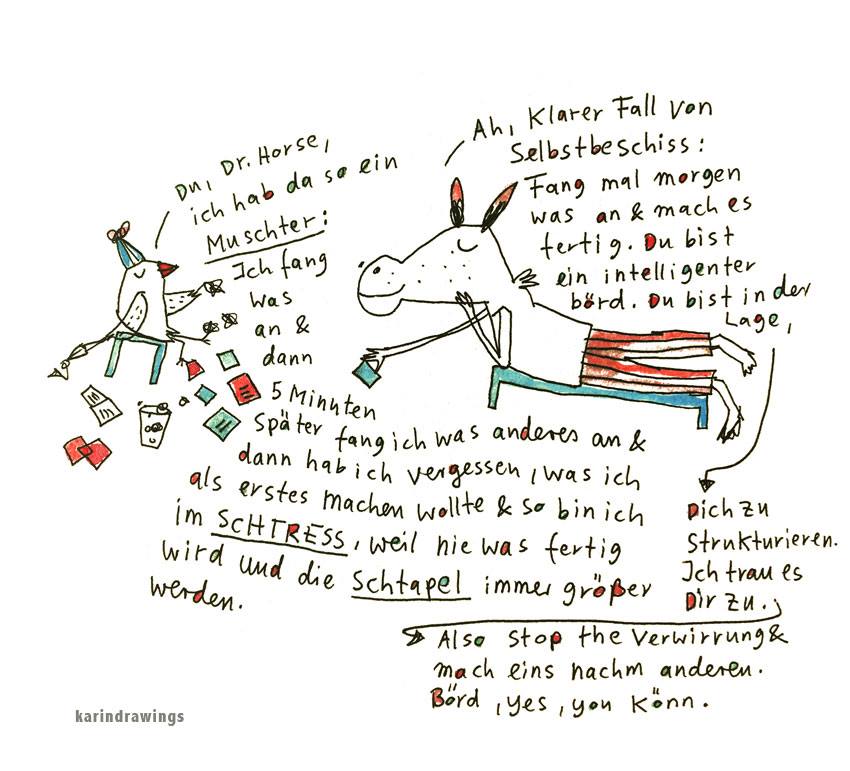 Du, Dr. Horse,
ich hab da so ein
Muschter:
Ich fang
was
an &
dann
5 Minuten
später fang ich was anderes an &
dann hab ich vergessen, was ich
als erstes machen wollte & so bin ich
im SCHTRESS, weil nie was fertig
wird und die Schtapel immer größer
werden.
Ah, Klarer Fall von
Selbstbeschiss:
Fang mal morgen
was an & mach es
fertig. Du bist
ein intelligenter
börd. Du bist in der
Lage,
Dich zu
Strukturieren.
Ich trau es
Dir zu.
Also stop the Verwirrung &
mach eins nachm anderen.
Börd, yes, you könn.
karindrawings